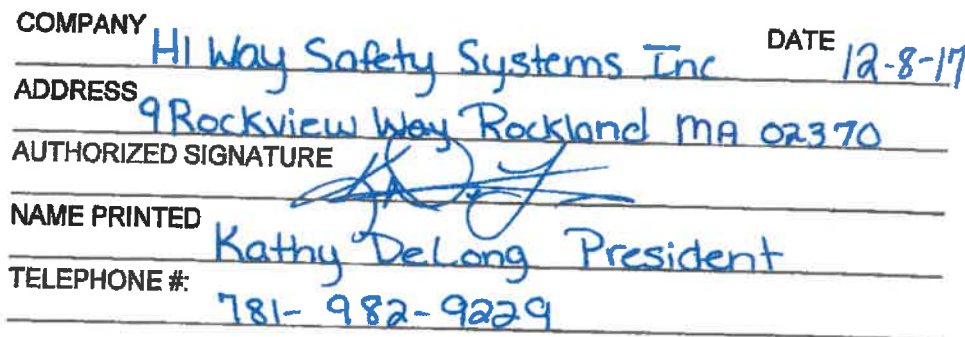 COMPANY HI Way Safety Systems Inc DATE 12-8-17
ADDRESS 9 Rockview Way Rockland MA 02370
AUTHORIZED SIGNATURE
NAME PRINTED Kathy DeLong President
TELEPHONE #: 781-982-9229